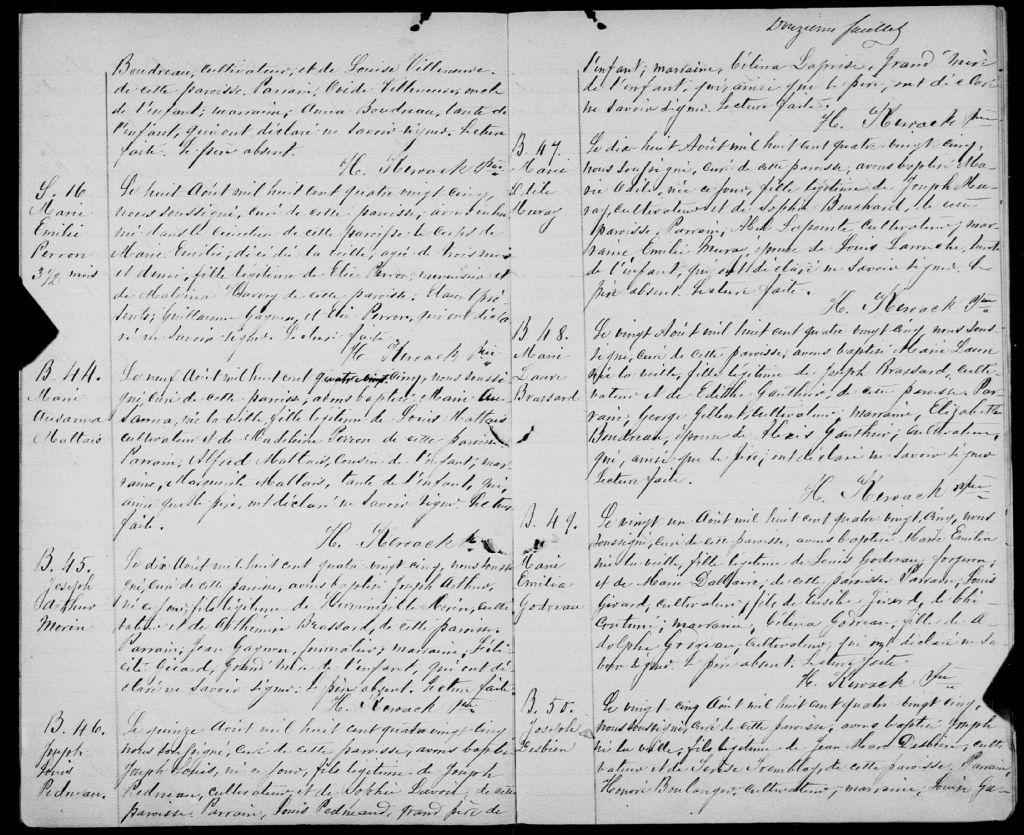 Boudreau, cultivateur, et de Louise Villeneuve.
de cette paroisse. Parrain, Ovide Villeneuve, oncle
de l'enfant; marraine, Anna Boudreau, tante de
l'enfant, qui ont déclaré ne savoir signer. Lecture
faite. Le père absent.
H. Kerouack Ptre
S. 16
Marie
Emilie
Perron
3 1/2 mois
Le huit Août mil huit cent quatre vingt cinq,
nous soussigné, curé de cette paroisse, avons inhu-
mé dans le cimetière de cette paroisse le corps de
Marie Emilie, décédée la veille, agée de trois mois
et demi, fille légitime de Elie Perron, et
de Malvina Harvey de cette paroisse. Etaient pré-
sents; Guillaume Gagnon, et Elie Perron, qui ont décla-
ré ne savoir signer. Lecture faite
H. Kerouack Ptre
B. 44.
Marie
Ausanna
Maltais
Le neuf Août mil huit cent quatre vingt cinq, nous soussi-
gné, curé de cette paroisse, avons baptisé Marie Au
Sanna, née la veille, fille légitime de Louis Maltais
cultivateur et de Madeleine Perron de cette paroisse
Parrain, Alfred Maltais, cousin de l'enfant; mar-
raine, Maltais, tante de l'enfant, qui,
ainsi que le père, ont déclaré ne savoir signer. Lecture
faite.
H. Kerouack
B. 45.
Joseph
Arthur
Morin
Le dix Août mil huit cent quatre vingt cinq, nous soussi-
gné, curé de cette paroisse, avons baptisé Joseph Arthur,
né ce jour, fils légitime de Herménégilde Morin, culti-
vateur et de Arthémise Brassard, de cette paroisse.
Parrain, Jean Gagnon, journalier; marraine, Féli-
cité Girard, Grand' Mère de l'enfant, qui ont dé-
claré ne savoir signer. Le père absent. Lecture faite
H. Kerouack Ptre
B. 46.
Joseph
Louis
Pedneau.
Le quinze Août mil huit cent quatre vingt cinq
nous soussigné, curé de cette paroisse, avons baptisé
Joseph Louis, né ce jour, fils légitime de Joseph
Pedneau, cultivateur et de Sophie Lavoie, de cette
paroisse. Parrain, Louis Pedneaud, grand père de
Douzième feuillet
l'enfant; marraine, Célina Laprise, Grand' Mère
de l'enfant, qui, ainsi que le père, ont déclaré
ne savoir signer. Lecture faite.
H. Kerouack Ptre
B. 47.
Marie
Muray
Le dix huit Août mil huit cent quatre vingt cinq,
nous soussigné, curé de cette paroisse, avons baptisé Ma-
rie née ce jour, fille légitime de Joseph Mu-
ray, cultivateur et de Sophie Bouchard, de cette
paroisse. Parrain, Lapointe cultivateur; mar-
raine Emilie Muray, épouse de Louis Larouche, tante
de l'enfant, qui ont déclaré ne savoir signer. Le
père absent. Lecture faite.
H. Kerouack Ptre
B. 48.
Marie
Laure
Brassard
Le vingt Août mil huit cent quatre vingt cinq, nous sous-
signé, curé de cette paroisse, avons baptisé Marie Laure
née la veille, fille légitime de Joseph Brassard, culti-
vateur et de Edithe Gauthier, de cette paroisse. Par-
rain; George Gilbert, cultivateur; marraine, Elizabeth
Boudreau, épouse de Alexis Gauthier, cultivateur,
qui, ainsi que le père, ont déclaré ne savoir signer
Lecture faite.
H. Kerouack Ptre
B. 49.
Marie
Emilia
Godreau
Le vingt un Août mil huit cent quatre vingt cinq, nous
soussigné, curé de cette paroisse, avons baptisé Marie Emilia
née la veille, fille légitime de Louis Godreau, forgeron,
et de Marie Dallaire, de cette paroisse. Parrain, Louis
Girard, cultivateur, fils de Eusèbe Girard, de Chi-
coutimi; marraine, Célina Godreau, fille de A-
dolphe Godreau, cultivateur, qui ont déclaré ne sa-
voir signer Le père absent. Lecture faite.
H. Kerouack Ptre
B. 50.
Joseph
Desbien
Le vingt cinq Août mil huit cent quatre vingt cinq,
nous soussigné, curé de cette paroisse, avons baptisé Joseph
né la veille, fils légitime de Jean Marc Desbien, culti-
vateur et de Térèse Tremblay, de cette paroisse. Parrain
Honoré Boulanger, cultivateur; marraine, Louise Ga-